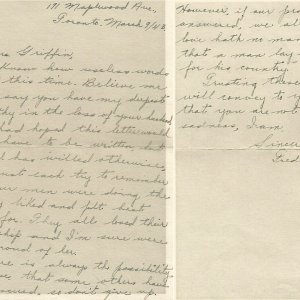 171 Maplewood Ave,
Toronto. March 9/43
Griffin,
Know how useless words
this time. Believe me
say you have my deepest
in the loss of your husband
had hoped this letter would
have to be written but
has willed otherwise,
must each try to remember
our men were doing the
they liked and felt best
for. They all loved their
ship and I'm sure were
proud of her.
There is always the possibility
that some others have
so don't give up.
However, if our
answered, we
love hath no ma
that a man lay
for his country
Trusting th
will convey to y
that you are not
sadness, I am,
Since
Fred